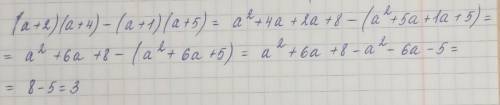 (a+2)(a+4)-(a+1)(a+5)= a²+4a+2a+8-(a²+5a+1a+5)=
= a²+6a+8-(a²+6a+5)= a²+6a+8-a²-6a-5=
= 8-5=3